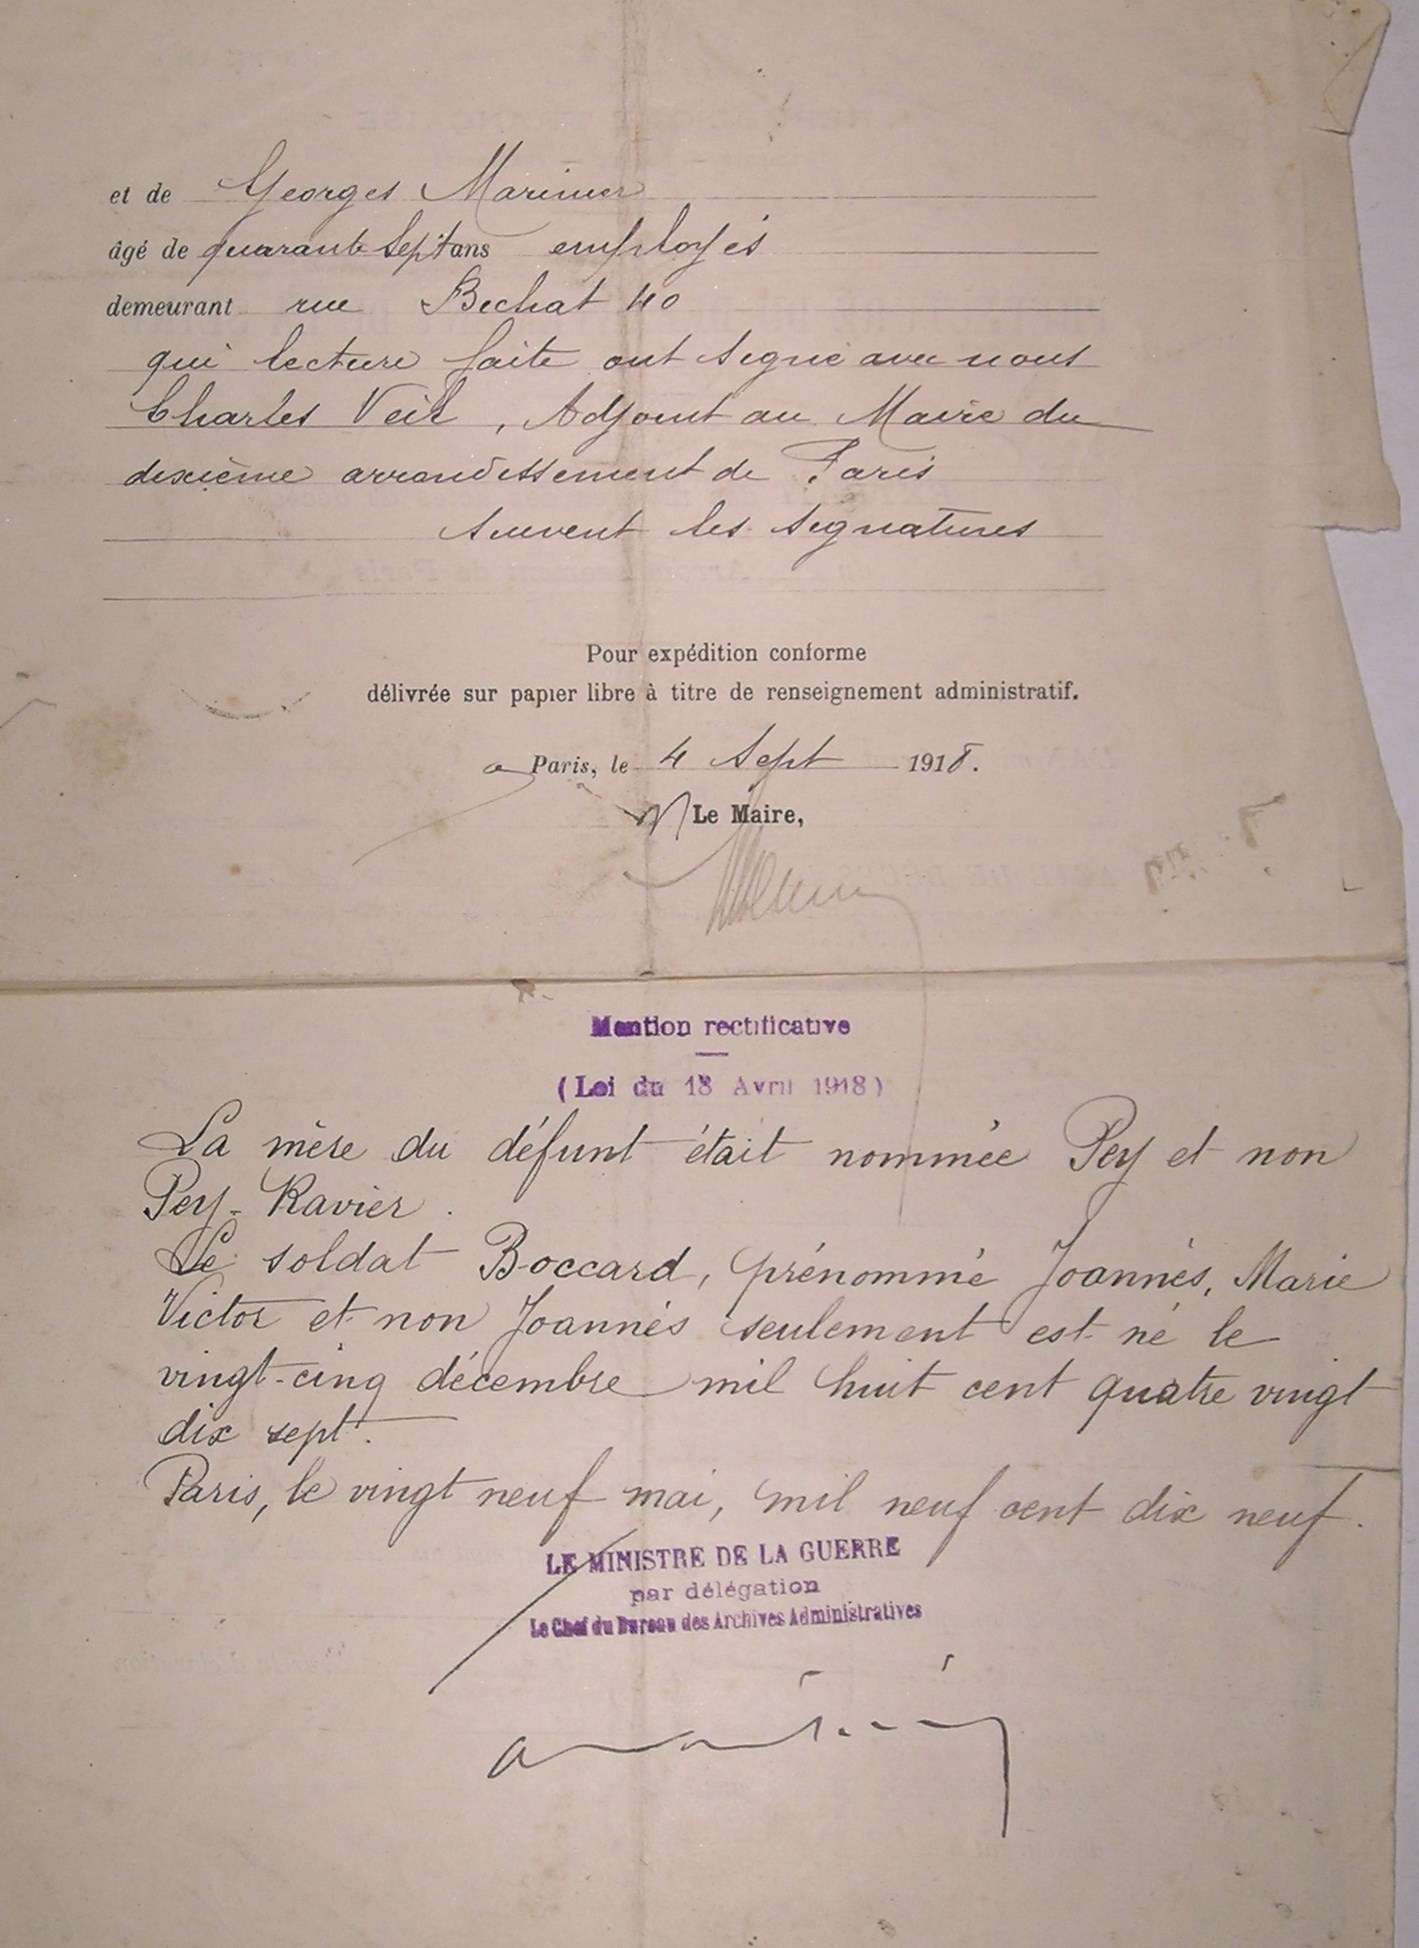 et de Georges Marinier
âgé de quarante Sept ans employés
demeurant rue Bichat 40
qui lecture faite ont signé avec nous
Charles Veil, Adjoint au Maire du
dixième arrondissement de Paris
suivent les signatures
Pour expédition conforme
délivrée sur papier libre à titre de renseignement administratif.
Paris, le 4 Sept 1918.
Le Maire,
Mention rectificative
(Loi du 18 Avril 1918)
La mère du défunt était nommée Pey et non
Pey-Ravier.
Le soldat Boccard, prénommé Joannès, Marie
Victor et non Joannès seulement est né le
vingt-cinq décembre mil huit cent quatre vingt
dix sept.
Paris, le vingt neuf mai, mil neuf cent dix neuf.
LE MINISTRE DE LA GUERRE
par délégation
Le Chef du Bureau des Archives Administratives